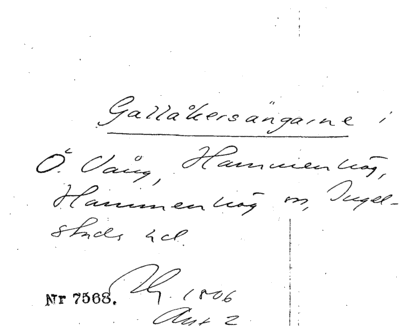 Gallåkersängarne i
Ö. Vång, Hammenhög,
Hammenhög sn, Ingel-
stads hd.
Nr 7568. 1806
Akt 2